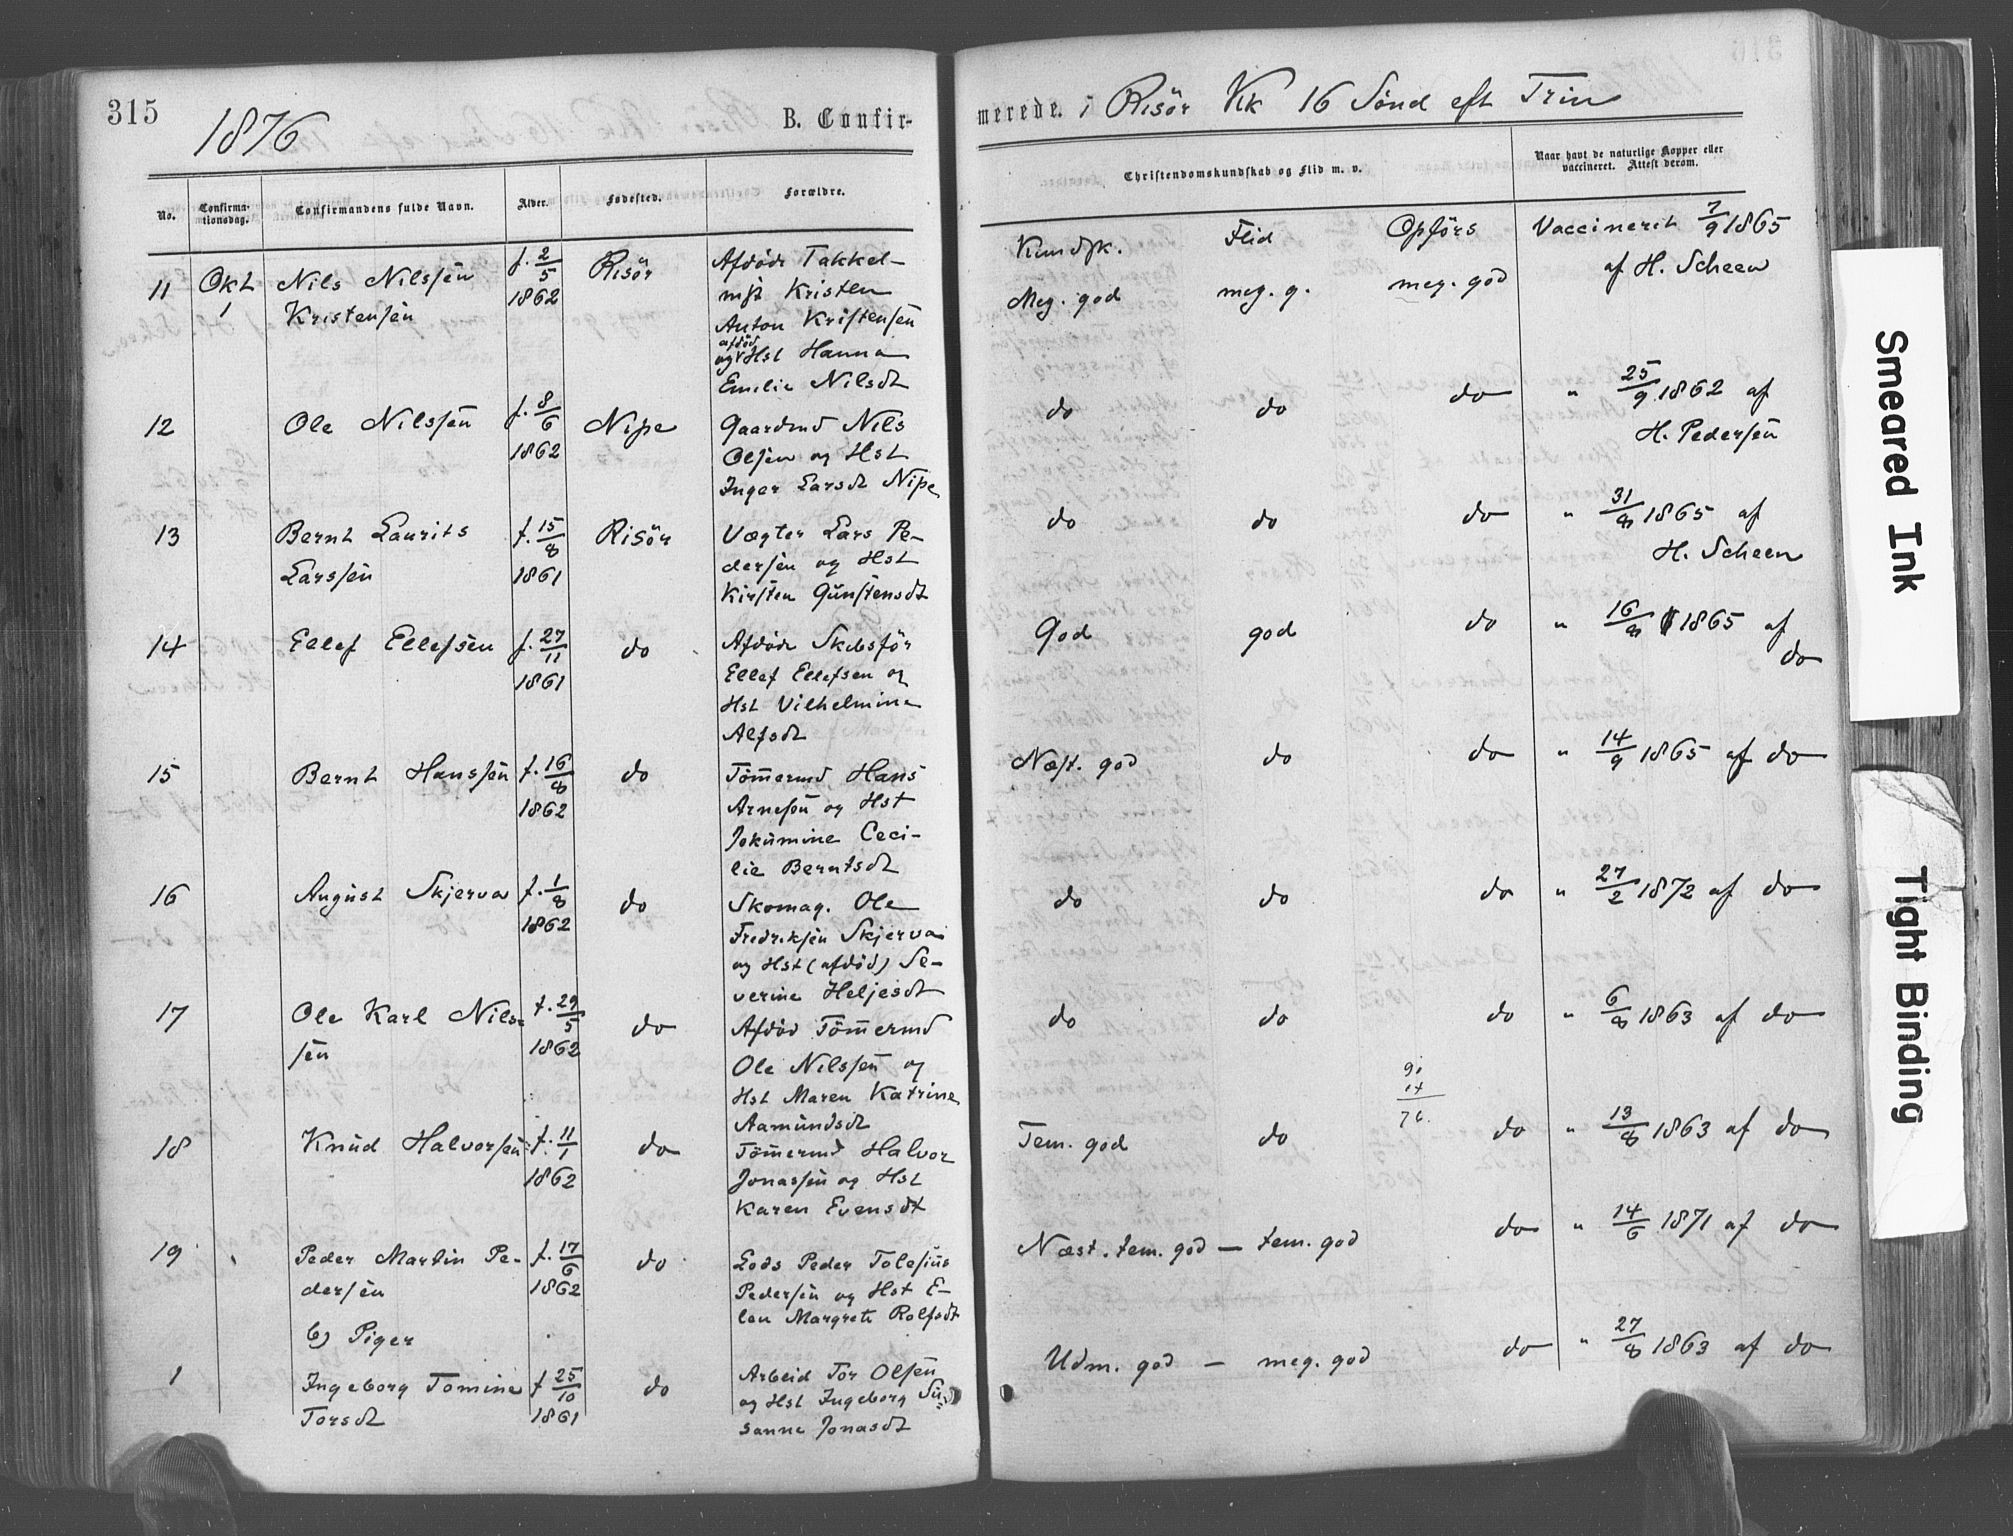 315
1876
B. Confir-
merede. i Risör Kk 16 Sönd eft Trin
No.
Confirma-
tionsdag.
Confirmandens fulde Navn.
Alder.
Fødested.
Forældre.
Christendomskundskab og Flid m. v.
Naar havt de naturlige Kopper eller
vaccineret. Attest derom.
Kundsk. Flid Opförs Vaccinerit 7/9 1865
af H. Scheen
11 Okt Nils Nilssen f. 2/5 Risör Afdöde Takkel-
1 Kristensen 1862 mst Kristen
Anton Kristensen
afdöd
og Hst Hanna
Emilie Nilsdt
Meg. god meg. g. meg. god
12 Ole Nilssen f. 8/6 Nipe Gaardmd Nils
1862 Olsen og Hst
Inger Larsdt Nipe
do do do " 25/9 1862 af
H. Pedersen
13 Bernt Laurits f. 15/8 Risör Vægter Lars Pe-
Larssen 1861 dersen og Hst
Kirsten Gunstensdt
do do do " 31/8 1865 af
H. Scheen
14 Ellef Ellefsen f. 27/11 do Afdöde Skibsför
1861 Ellef Ellefsen og
Hst Vilhelmine
Alfsdt
God god do " 16/8 1865 af
do
15 Bernt Hanssen f. 16/8 do Tömermd Hans
1862 Arnesen og Hst
Jokumine Ceci-
lie Berntsdt
Næst. god do do " 14/9 1865 af do
16 August Skjerva f. 1/8 do Skomag. Ole
1862 Fredriksen Skjerva
og Hst (afdöd) Se-
verine Heljesdt
do do do " 27/2 1872 af do
17 Ole Karl Nils- f. 29/5 do Afdöd Tömermd
sen 1862 Ole Nilssen og
Hst Maren Katrine
Aamundsdt
do do do " 6/8 1863 af do
18 Knud Halvorsen f. 11/1 do Tömermd Halvor
1862 Jonassen og Hst
Karen Evensdt
Tem. god do do " 13/8 1863 af do
19 Peder Martin Pe- f. 17/6 do Lods Peder Tolesius
dersen 1862 Pedersen og Hst E-
len Margrete Rolfsdt
Næst. tem. god — tem. god do " 14/6 1871 af do
b) Piger
1 Ingeborg Tomine f 25/10 do Arbeid Tor Olsen
Torsdt 1861 og Hst Ingeborg Su-
sanne Jonasdt
Udm. god — meg. god do " 27/8 1863 af do
Smeared Ink
Tight Binding